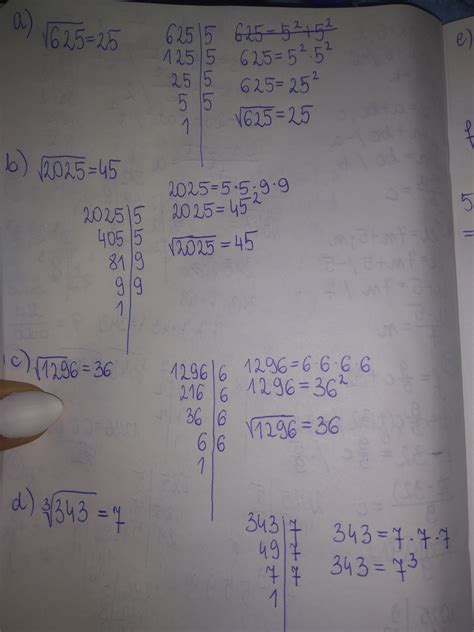 a) √625 = 25
625 | 5
125 | 5
25 | 5
5 | 5
1
625 = 5² + 5²
625 = 5² · 5²
625 = 25²
√625 = 25
b) √2025 = 45
2025 | 5
405 | 5
81 | 9
9 | 9
1
2025 = 5 · 5 · 9 · 9
2025 = 45²
√2025 = 45
c) √1296 = 36
1296 | 6
216 | 6
36 | 6
6 | 6
1
1296 = 6 · 6 · 6 · 6
1296 = 36²
√1296 = 36
d) ∛343 = 7
343 | 7
49 | 7
7 | 7
1
343 = 7 · 7 · 7
343 = 7³
e)
5
=